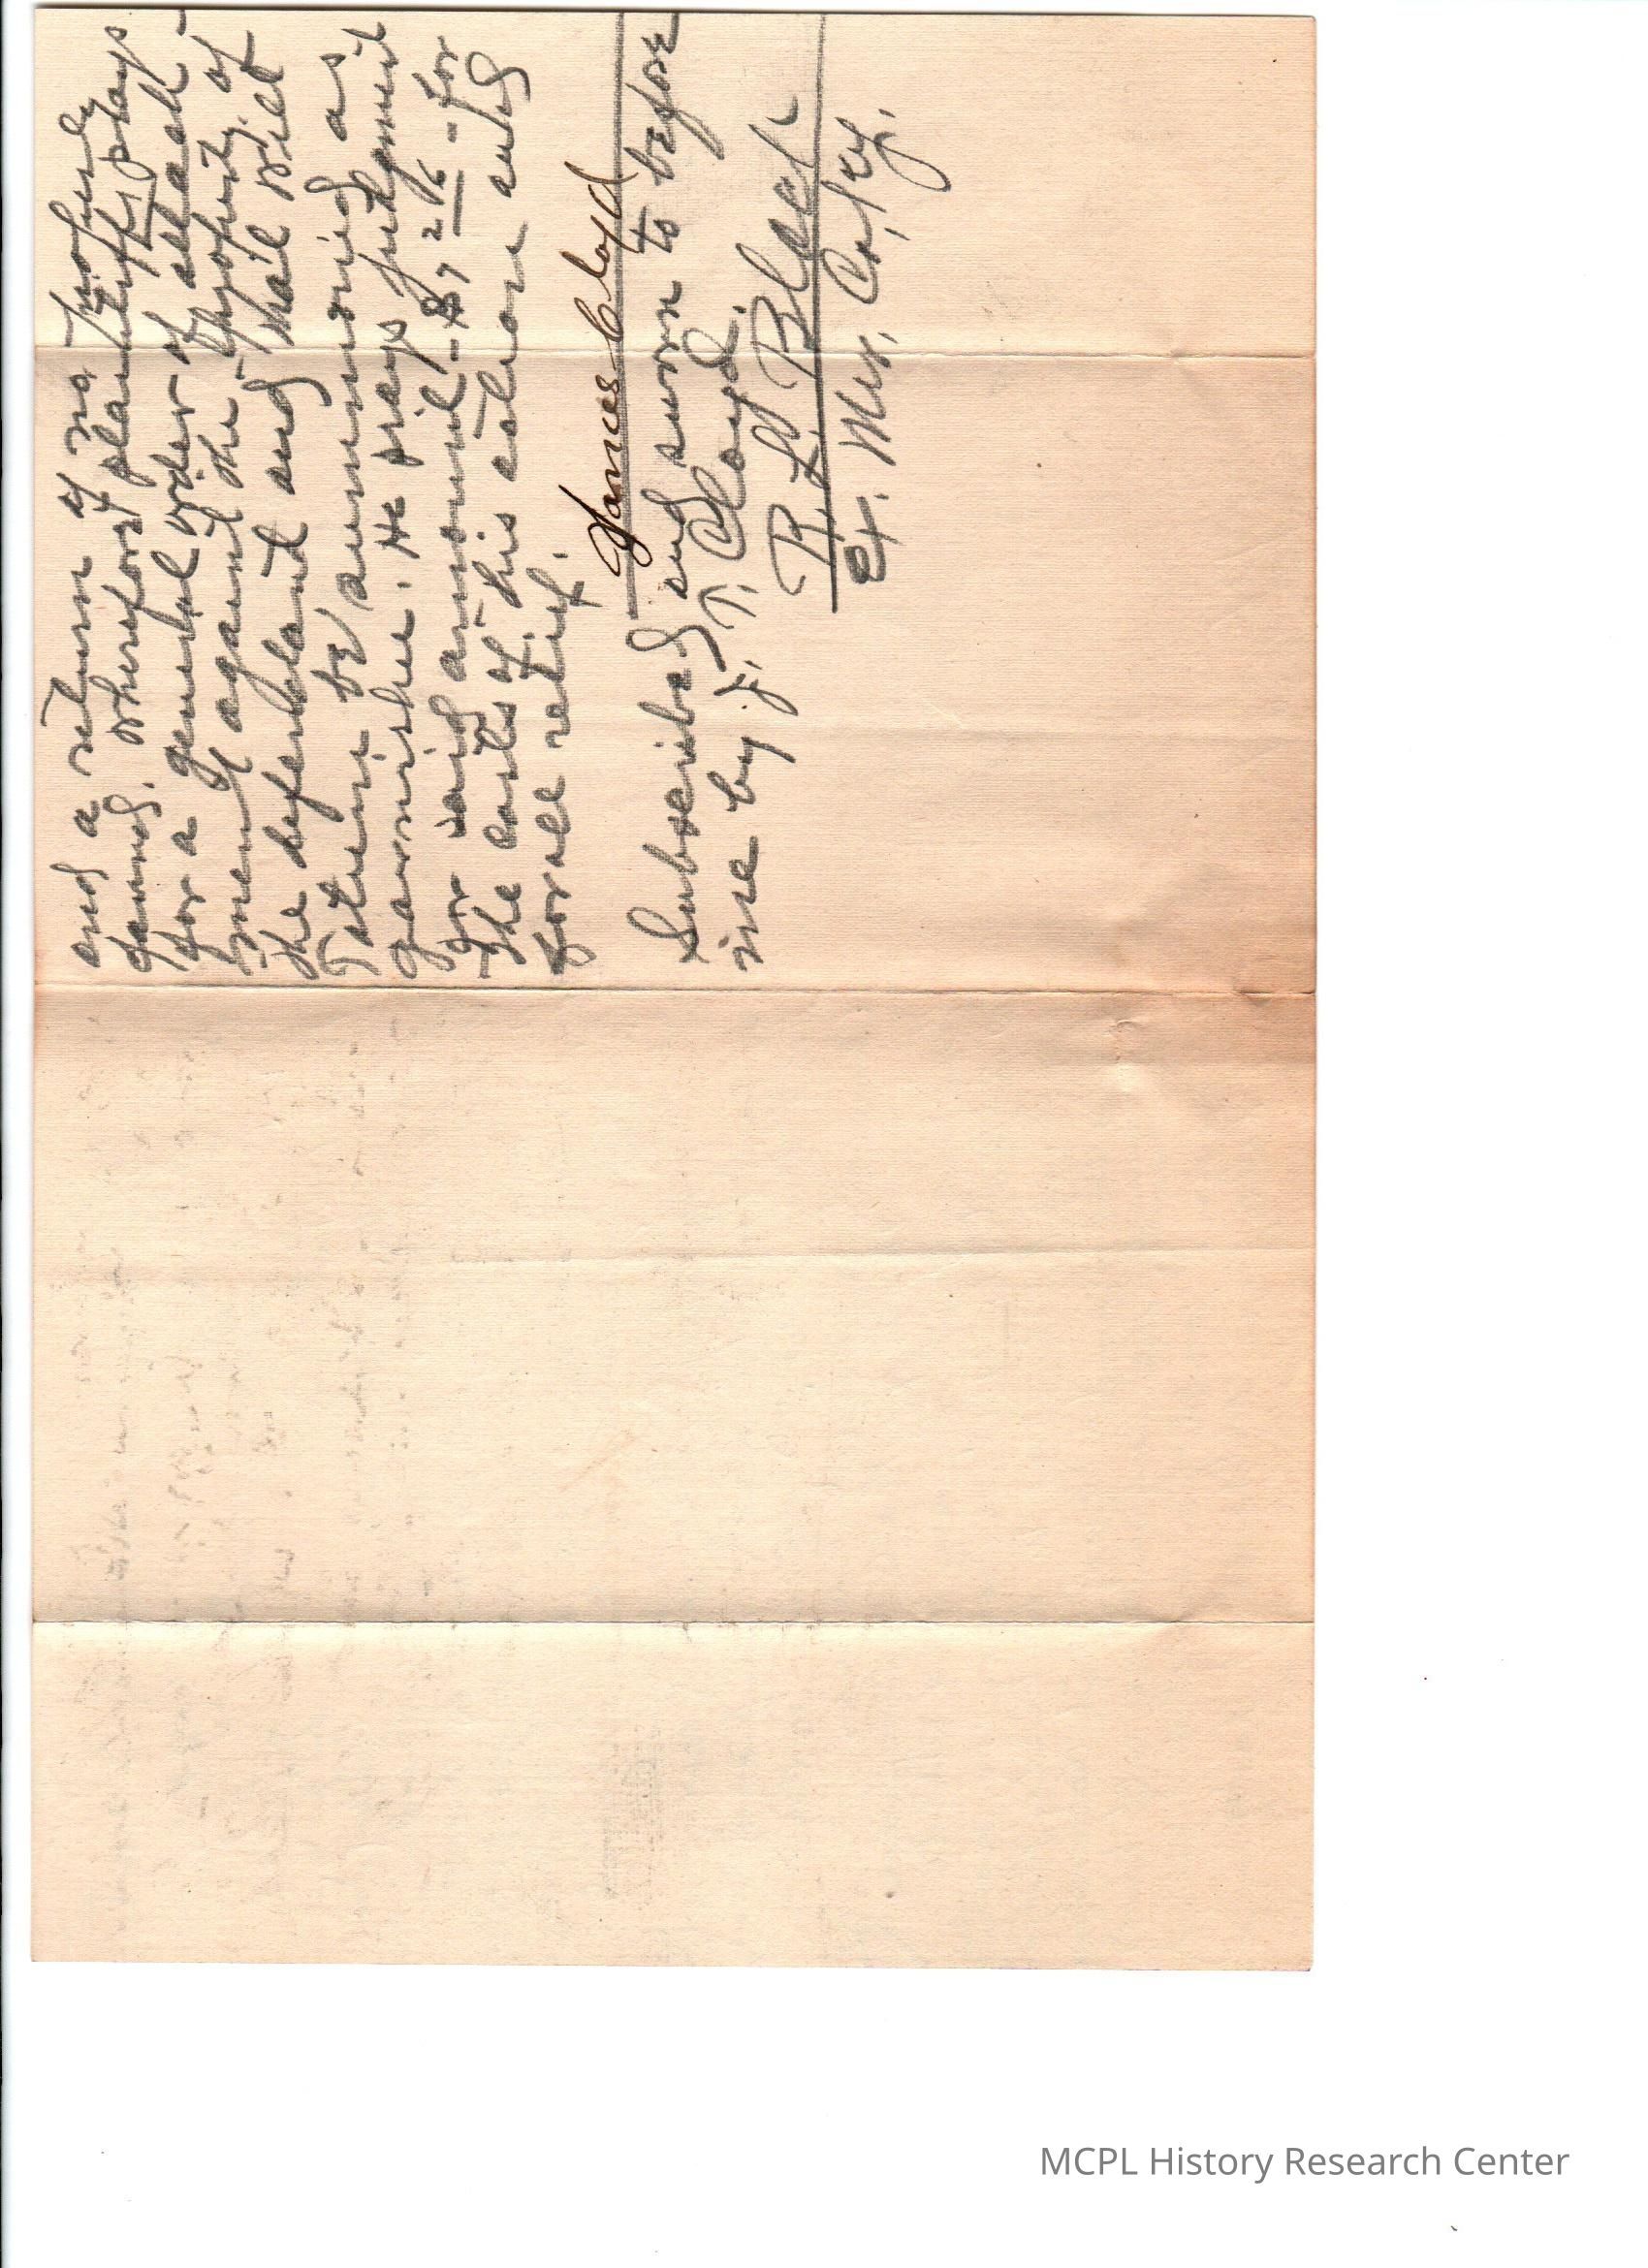 and a return of no property
found. Wherefore plaintiff prays
for a general order of attach-
ment against the property of
the defendant and that Will
Tatum be summoned as
garnishee. He prays judgment
for said amount - $7 26 - for
the costs of this action and
for all relief.
James Cloyd
Subscribed and sworn to before
me by J. T. Cloyd.
R. L. Black
Ex. Mer. Co, Ky.
MCPL History Research Center